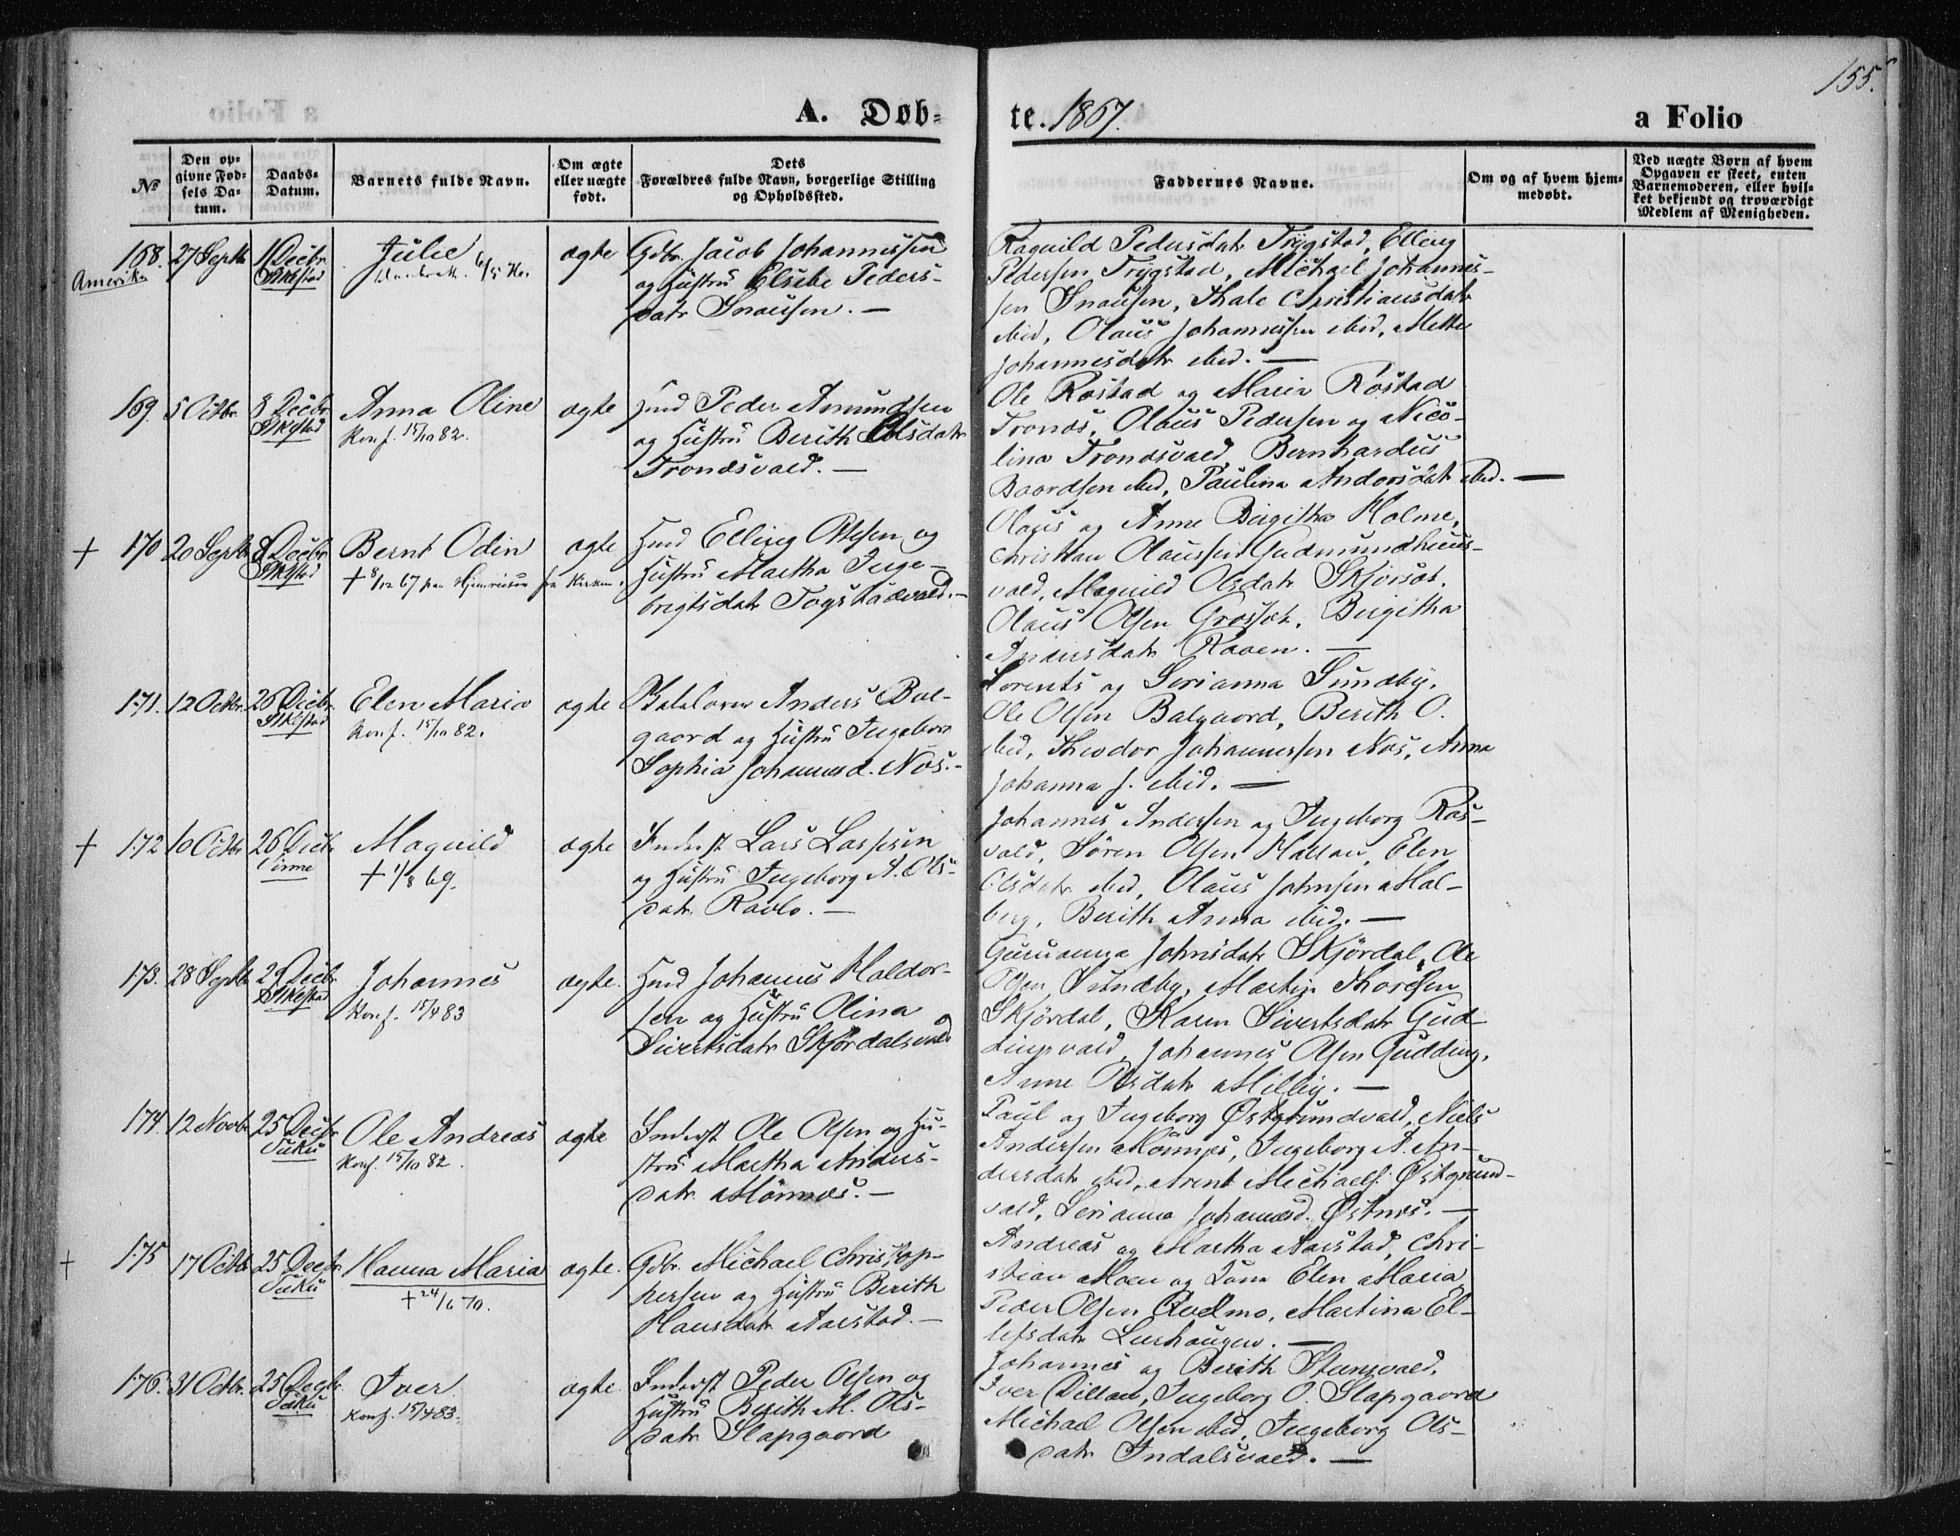 155.
a Folio
A. Døb=
te. 1867.
a Folio
No
Den op=
givne Fød=
sels Da=
tum.
Daabs=
Datum.
Barnets fulde Navn.
Om ægte
eller uægte
født.
Dets
Forældres fulde Navn, borgerlige Stilling
og Opholdssted.
Faddernes Navne.
Om og af hvem hjem=
medøbt.
Ved uægte Børn af hvem
Opgaven er skeet, enten
Barnemoderen, eller hvil=
ket bekjendt og troværdigt
Medlem af Menigheden.
168. 27 Septb 1 Decbr Julie ægte Gdbr. Jacob Johannessen
Amerika
og Hustru Elsebe Peders-
datr Snausen. —
Ragnild Pedersdatr Trygstad, Elling
Pedersen Trygstad, Michael Johannes-
sen Snausen, Thale Christiansdatr
ibid, Olaus Johannessen ibid, Mette
Johannesdatr ibid. —
169. 5 Octbr. 8 Decbr Anna Oline ægte Hmd Peder Amundsen
Konf. 15/10 82.
og Hustru Berith Olsdatr
Trondsvald. —
Ole Rostad og Maria Rostad
Tronds, Olaus Pedersen og Nico-
lina Trondsvald, Bernhardus
Baordsen ibid, Paulina Andersdatr ibid. —
+ 170 20 Septb 8 Decbr Bernt Odin ægte Hmd Elling Olsen og
+ 8/12 67 paa Hjemreisen fra Kirken.
Hustru Martha Inge-
brigtsdatr Togstadvald. —
Olaus og Anne Birgitha Holme,
Christian Olaussen Gudmundhuus-
vald, Magnild Olsdatr Skjørset.
Olaus Olsen Græsset, Birgitha
Andersdatr Raaen. —
171. 12 Octbr. 26 Decbr Elen Maria ægte Anders Bal-
Konf. 15/10 82.
gaard og Hustru Ingeborg
Sophia Johannesd. Næs. —
Lorents og Serianna Sundby.
Ole Olsen Balgaard, Berith O.
ibid, Theodor Johannessen Næs, Anna
Johanna J. ibid. —
+ 172 16 Octbr 26 Decbr Magnild ægte Inderst Lars Larssen
+ 1/8 69.
og Hustru Ingeborg A. Ols-
datr Ravlo. —
Johannes Andersen og Ingeborg Ros-
vald, Søren Olsen Hallan, Elen
Olsdatr ibid, Olaus Johnsen Hal-
berg, Berith Anna ibid. —
173. 28 Septb 29 Decbr Johannes ægte. Hmd Johannes Haldor-
Konf. 15/4 83
sen og Hustru Olina
Sivertsdatr Skjørdalsvald
Gurianna Johnsdatr Skjørdal, Ole
Olsen Sundby, Martin Thoresen
Skjørdal, Karen Sivertsdatr Gud-
dingsvald, Johannes Olsen Gudding,
Anne Olsdatr Milby. —
174. 12 Novbr 25 Decbr Ole Andreas ægte Inderst Ole Olsen og Hu-
Konf. 15/10 82.
stru Martha Anders-
datr Mønnes. —
Paul og Ingeborg Østgrundvald, Niels
Andersen Mønnes, Ingeborg A. An-
dersdatr ibid, Arent Michaels. Østgrund-
vald, Serianna Johannesd. Østnes. —
+ 175 17 Octbr 25 Decbr Hanna Maria ægte. Gdbr. Michael Christop-
+ 24/6 70.
hersen og Hustru Berith
Hansdatr Aarstad. —
Andreas og Martha Aarstad, Chri-
stian Moen og Kone Elen Maria
Peder Olsen Qvelmo, Martina El-
lefsdatr Leerhaugen. —
176. 31 Octbr. 25 Decbr Iver ægte Inderst Peder Olsen og
Konf. 15/4 83.
Hustru Berith M. Ols-
datr Slapgaard
Johannes og Berith Stensvald.
Iver Dillan, Ingeborg O. Slapgaard
Michael Olsen ibid, Ingeborg Ols-
datr Indalsvald. —